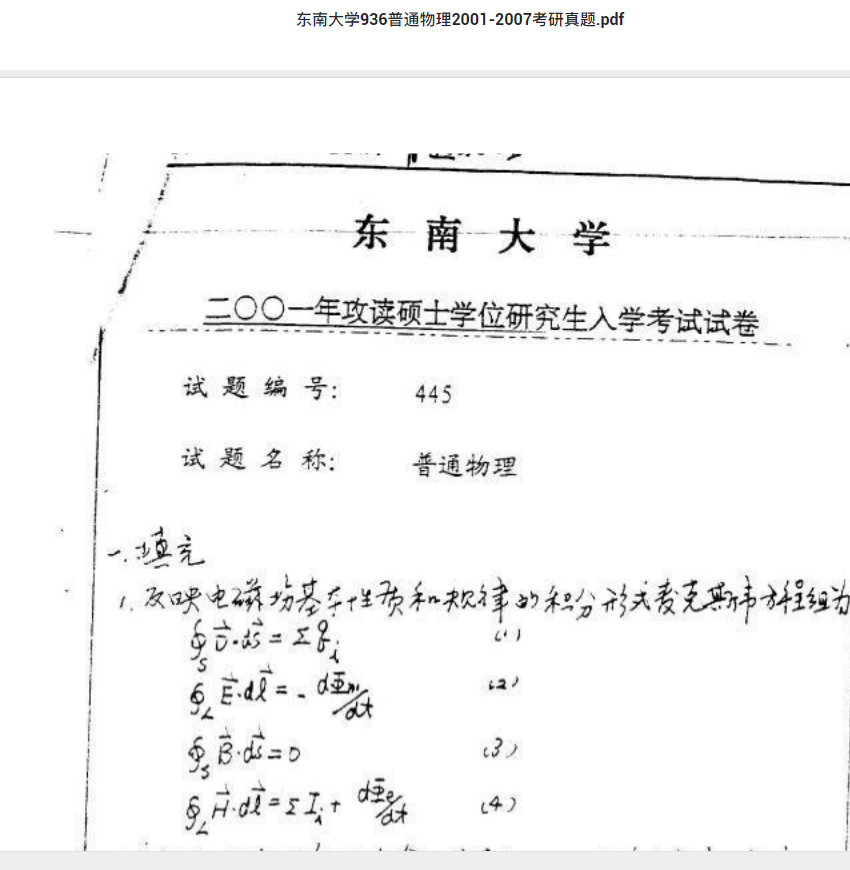 东南大学936普通物理2001-2007考研真题.pdf
东南大学
二〇〇一年攻读硕士学位研究生入学考试试卷
试题编号: 445
试题名称: 普通物理
一.填充
1.反映电磁场基本性质和规律的积分形式麦克斯韦方程组为
∮_S D⃗·dS⃗ = Σq_i (1)
∮_L E⃗·dl⃗ = -dΦ_m/dt (2)
∮_S B⃗·dS⃗ = 0 (3)
∮_L H⃗·dl⃗ = ΣI_i + dΦ_e/dt (4)